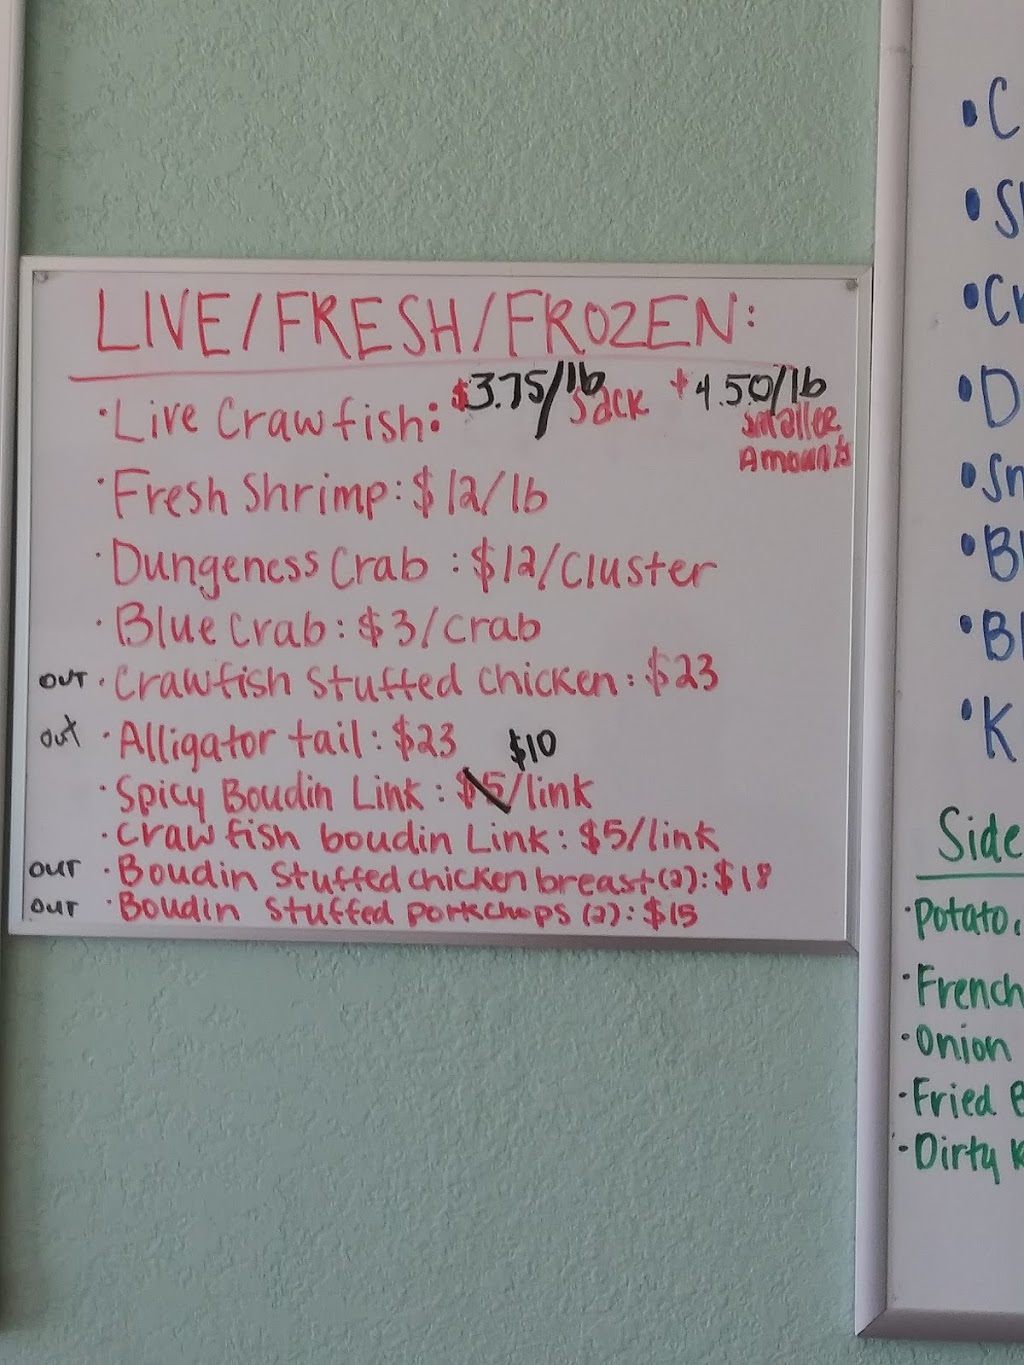 LIVE/FRESH/FROZEN:
· Live Crawfish: $3.75/lb sack + 4.50/lb smaller
Amounts
· Fresh Shrimp: $12/lb
· Dungeness Crab: $12/cluster
· Blue Crab: $3/crab
OUT · Crawfish Stuffed Chicken: $23
out · Alligator tail: $23
$10
· Spicy Boudin Link: $5/link
· Crawfish boudin Link: $5/link
OUT · Boudin Stuffed chicken breast (2): $18
OUT · Boudin Stuffed porkchops (2): $15
• C
• S
• Cr
• D
• Sn
• Bl
• Bl
• K
Side
· Potato
· French
· Onion
· Fried
· Dirty